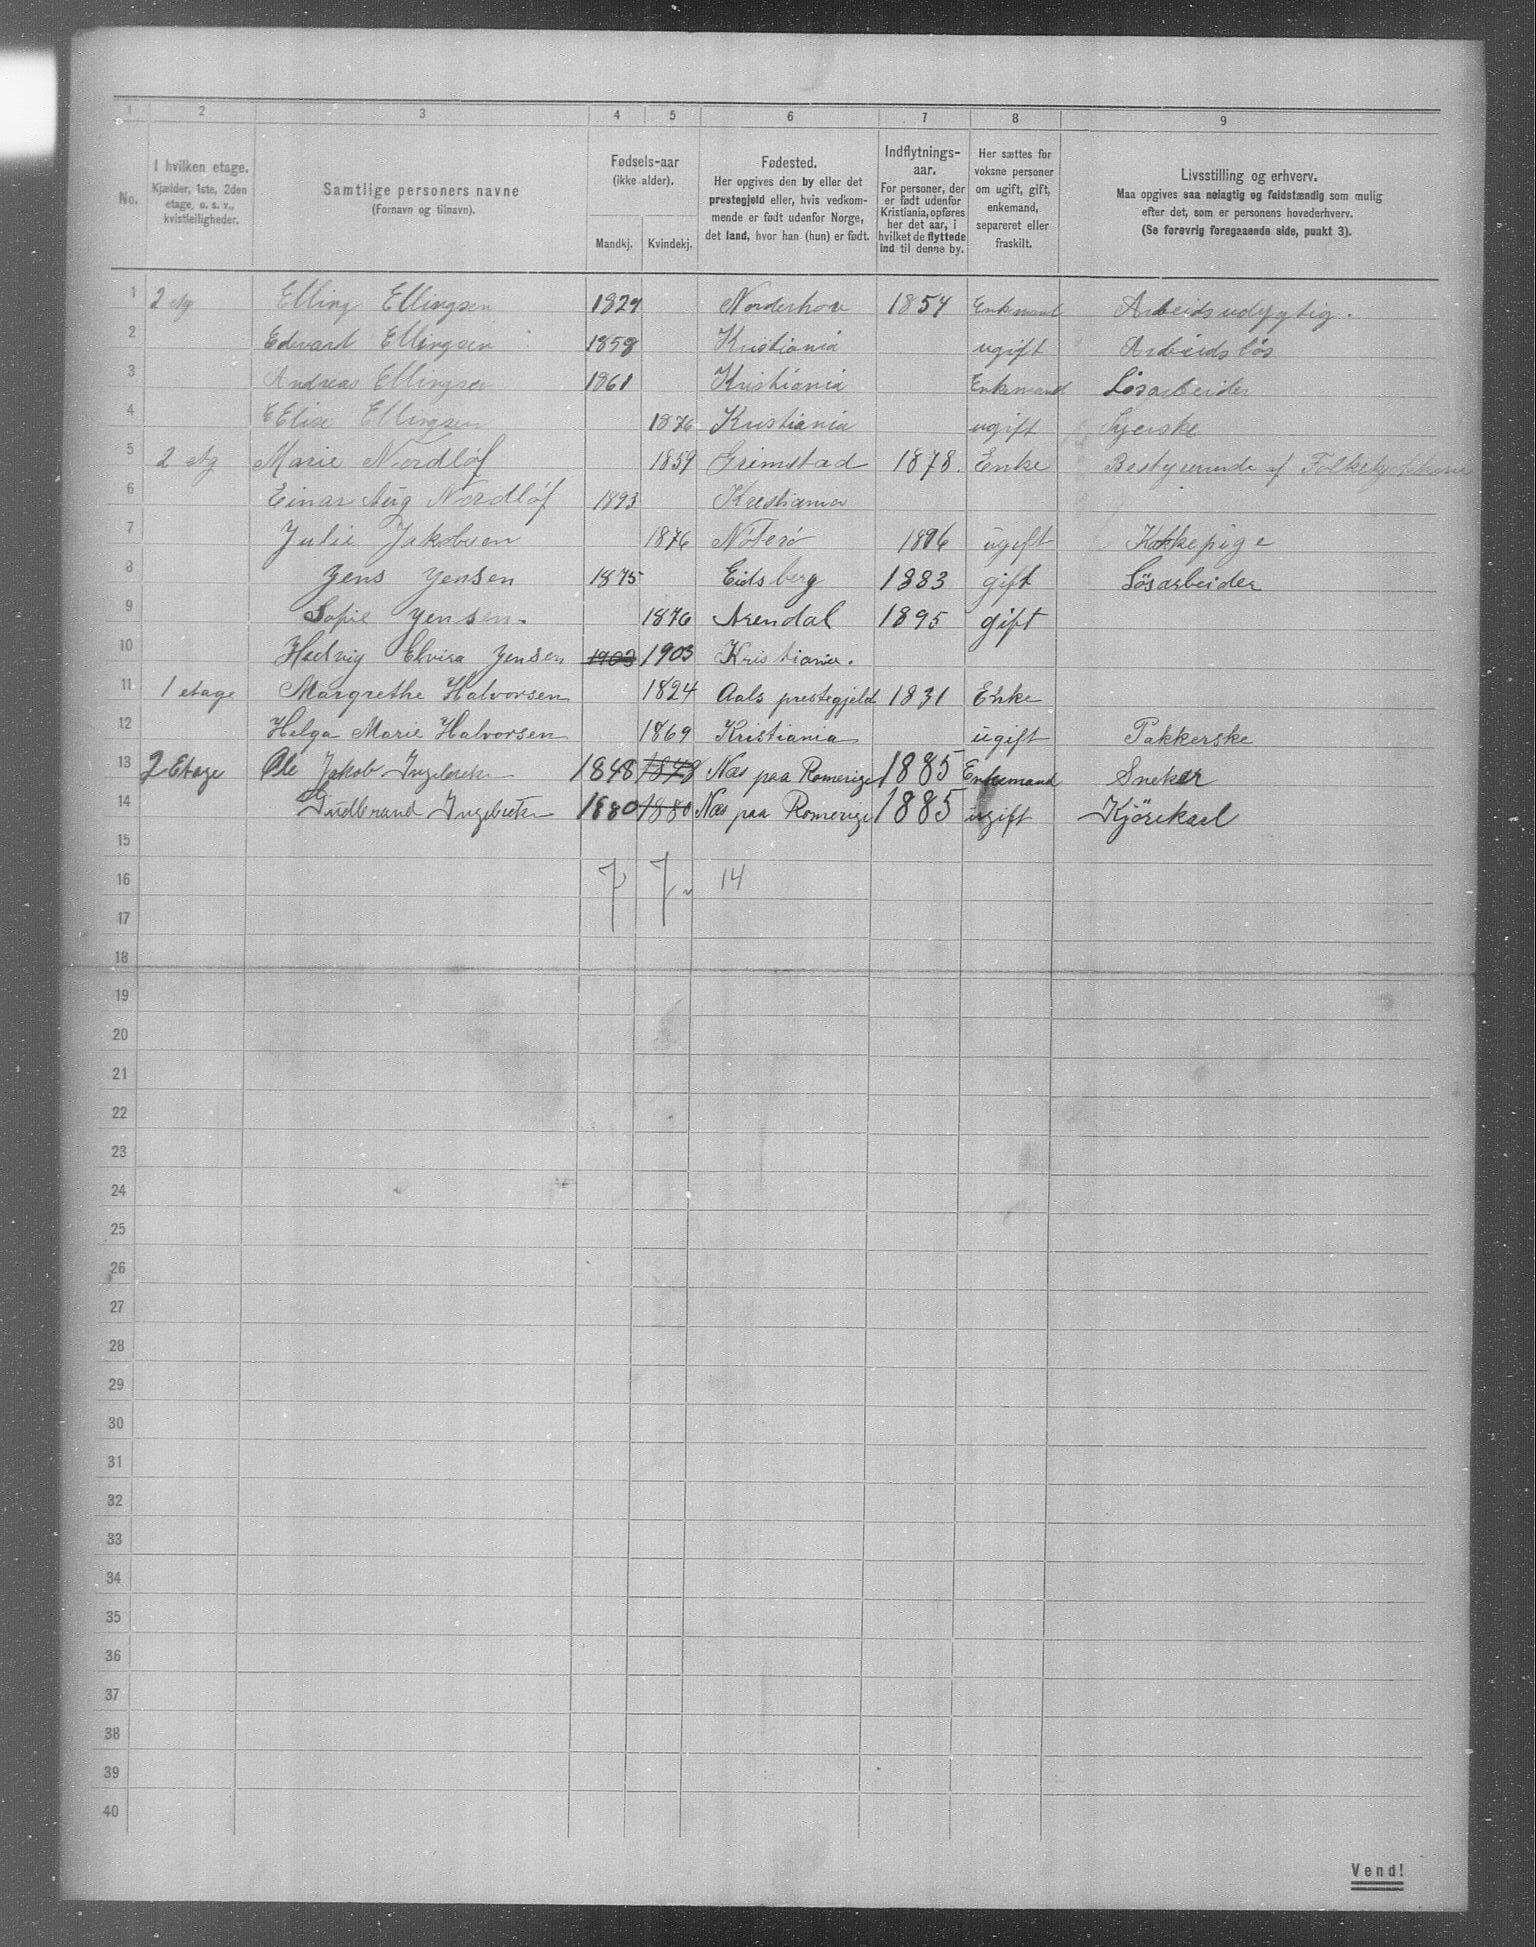 1 2 3 4 5 6 7 8 9
No.
I hvilken etage.
Kjælder, 1ste, 2den
etage, o. s. v.,
kvistleiligheder.
Samtlige personers navne
(Fornavn og tilnavn).
Fødsels-aar
(ikke alder).
Mandkj. Kvindekj.
Fødested.
Her opgives den by eller det
prestegjeld eller, hvis vedkom-
mende er født udenfor Norge,
det land, hvor han (hun) er født.
Indflytnings-
aar.
For personer, der
er født udenfor
Kristiania, opføres
her det aar, i
hvilket de flyttede
ind til denne by.
Her sættes for
voksne personer
om ugift, gift,
enkemand,
separeret eller
fraskilt.
Livsstilling og erhverv.
Maa opgives saa nøiagtig og fuldstændig som mulig
efter det, som er personens hovederhverv.
(Se forøvrig foregaaende side, punkt 3).
1 2 etg Elling Ellingsen 1829 Norderhov 1854 Enkemand Arbeidsudygtig.
2 Edevart Ellingsen 1858 Kristiania ugift Arbeidsløs
3 Andreas Ellingsen 1861 Kristiania Enkemand Løsarbeider
4 Elise Ellingsen 1876 Kristiania ugift Syerske
5 2 etg Marie Nordlöf 1859 Grimstad 1878. Enke Bestyrerinde af
6 Einar Aug Nordlöf 1893 Kristiania
7 Julie Jakobsen 1876 Nøterø 1896 ugift Kokkepige
8 Jens Jensen 1875 Eidsberg 1883 gift Løsarbeider
9 Sofie Jensen. 1876 Arendal 1895 gift
10 Hedvig Elvira Jensen 1903 1903 Kristiania.
11 1 etage Margrethe Halvorsen 1824 Aals prestegjeld 1831 Enke
12 Helga Marie Halvorsen 1869 Kristiania ugift Pakkerske
13 2 Etage Ole Jakob Ingebretsen 1848 1848 Næs paa Romerige 1885 Enkemand Sneker
14 Gudbrand Ingebretsen 1880 1880 Næs paa Romerige 1885 ugift Kjörekael
15
16 7 7 14
17
18
19
20
21
22
23
24
25
26
27
28
29
30
31
32
33
34
35
36
37
38
39
40
Vend!